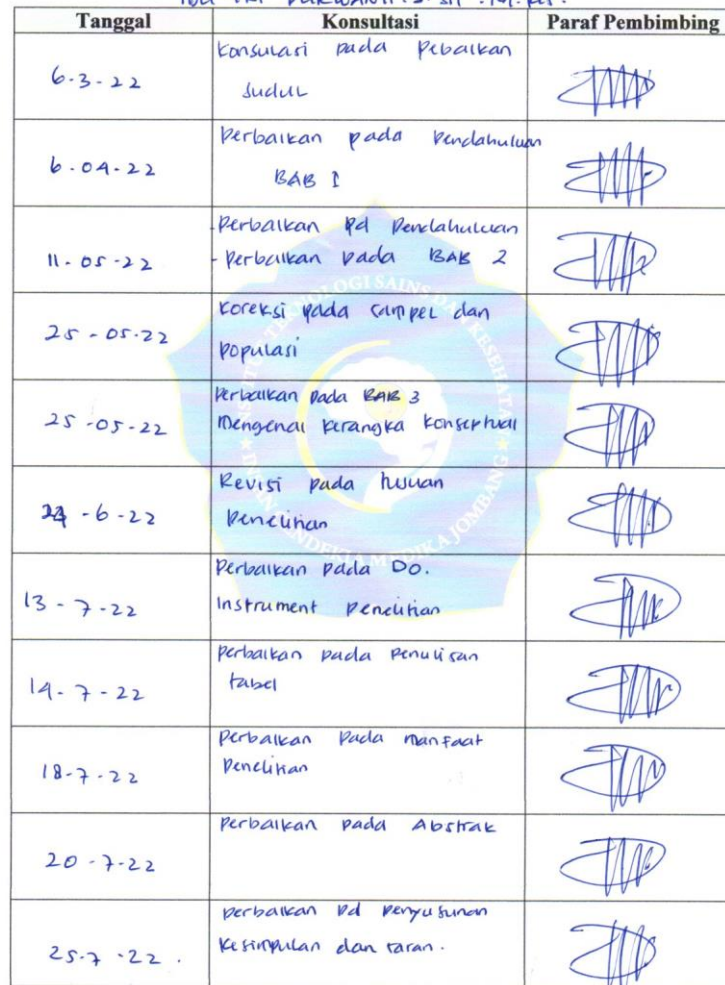 Tanggal Konsultasi Paraf Pembimbing
6-3-22 Konsulasi pada Pebaikan
Judul
6-04-22 Perbaikan pada Pendahuluan
BAB I
11-05-22 - Perbaikan Pd Pendahuluan
- Perbaikan Pada BAB 2
25-05-22 Koreksi pada sampel dan
Populasi
25-05-22 Perbaikan Pada BAB 3
Mengenai Kerangka Konseptual
-6-22 Revisi pada tujuan
Penelitian
13-7-22 Perbaikan Pada Do.
Instrument Penelitian
14-7-22 Perbaikan pada Penulisan
tabel
18-7-22 Perbaikan Pada Manfaat
Penelitian
20-7-22 Perbaikan pada Abstrak
25-7-22. Perbaikan Pd Penyusunan
Kesimpulan dan saran.
INSTITUT TEKNOLOGI SAINS DAN KESEHATAN
INSAN CENDEKIA MEDIKA JOMBANG